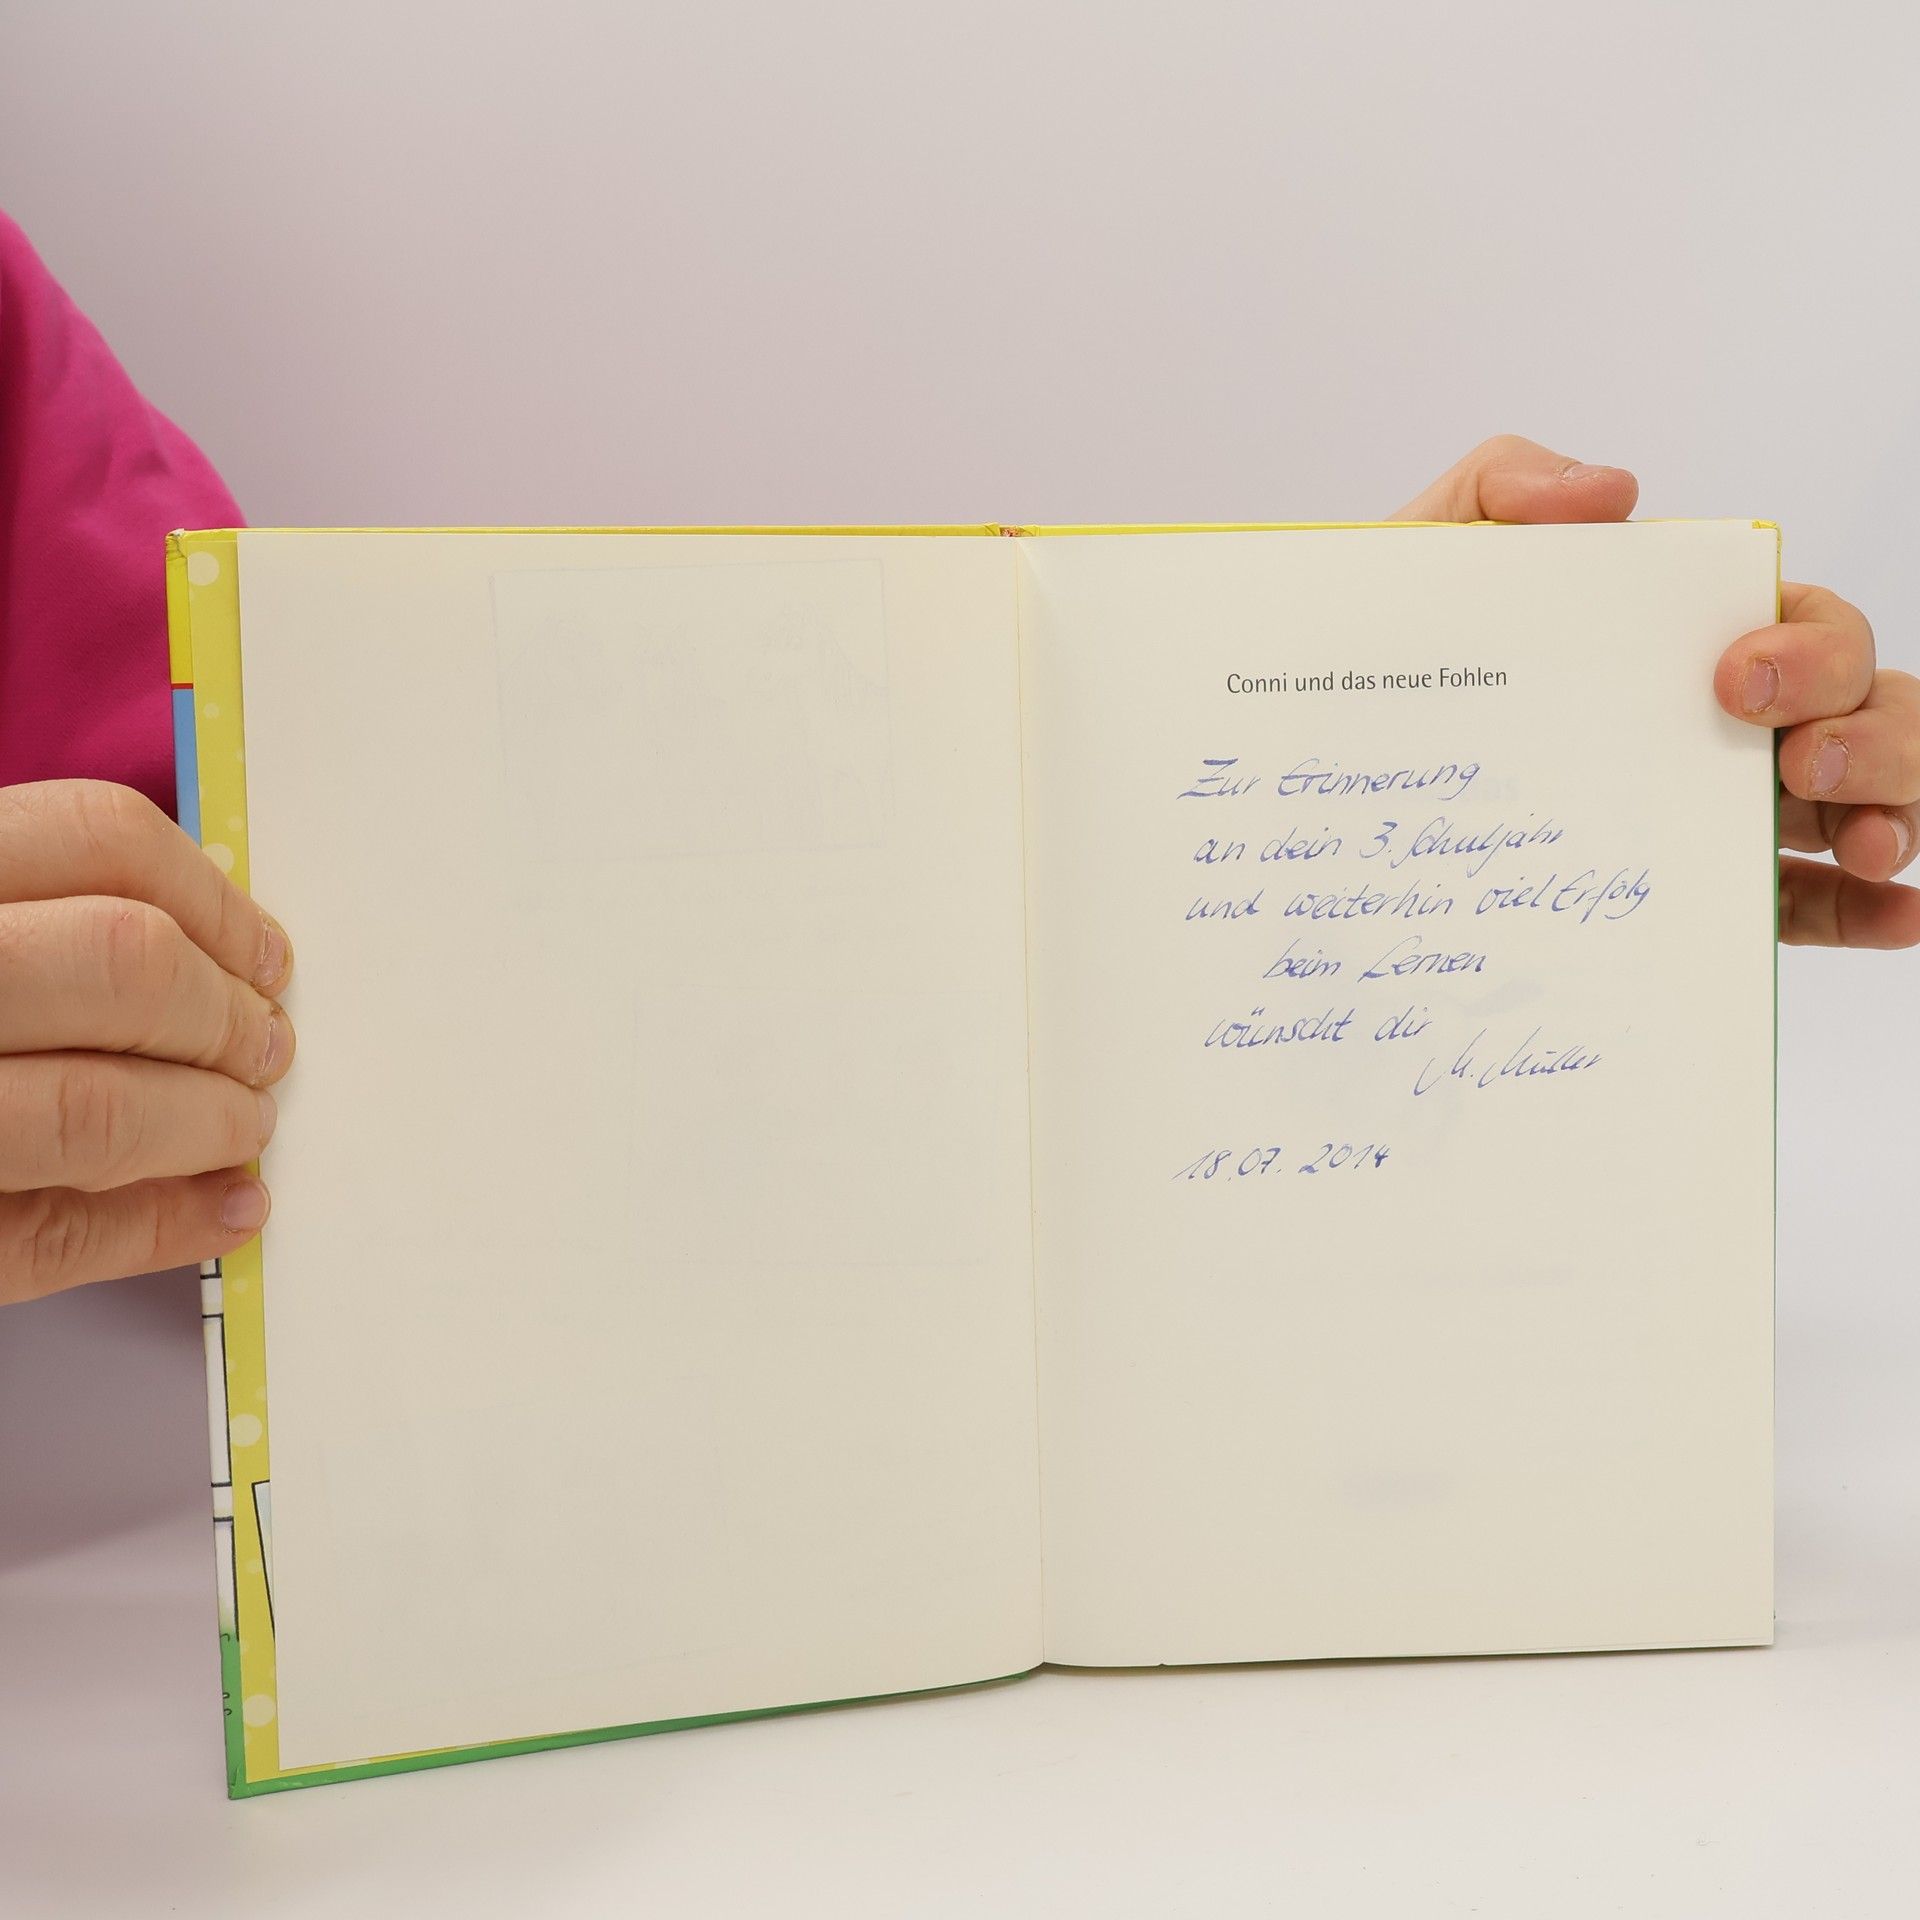 Conni und das neue Fohlen
Zur Erinnerung
an dein 3. Schuljahr
und weiterhin viel Erfolg
beim Lernen
wünscht dir
M. Müller
18.07.2014